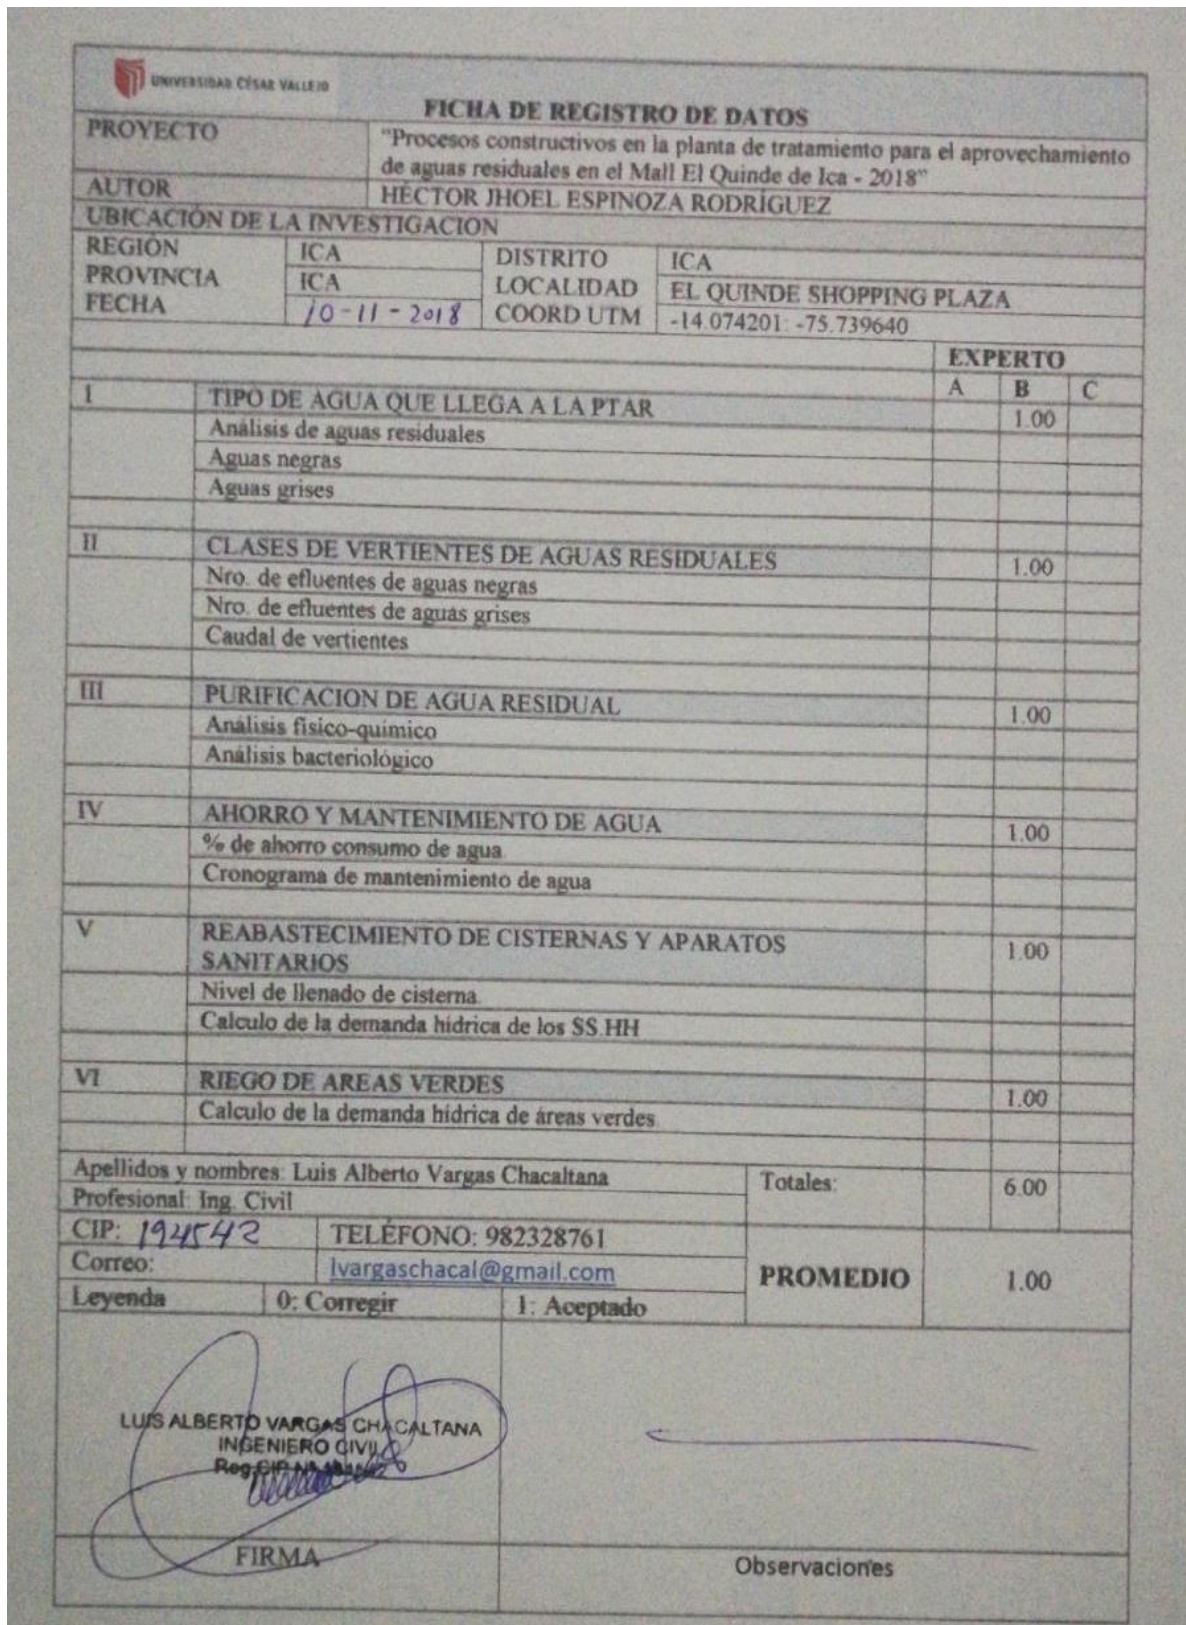 UNIVERSIDAD CÉSAR VALLEJO
FICHA DE REGISTRO DE DATOS
PROYECTO
"Procesos constructivos en la planta de tratamiento para el aprovechamiento
de aguas residuales en el Mall El Quinde de Ica - 2018"
AUTOR HÉCTOR JHOEL ESPINOZA RODRÍGUEZ
UBICACIÓN DE LA INVESTIGACION
REGIÓN ICA DISTRITO ICA
PROVINCIA ICA LOCALIDAD EL QUINDE SHOPPING PLAZA
FECHA 10-11-2018 COORD UTM -14.074201: -75.739640
EXPERTO
A B C
I TIPO DE AGUA QUE LLEGA A LA PTAR 1.00
Análisis de aguas residuales
Aguas negras
Aguas grises
II CLASES DE VERTIENTES DE AGUAS RESIDUALES 1.00
Nro. de efluentes de aguas negras
Nro. de efluentes de aguas grises
Caudal de vertientes
III PURIFICACION DE AGUA RESIDUAL 1.00
Análisis físico-químico
Análisis bacteriológico
IV AHORRO Y MANTENIMIENTO DE AGUA 1.00
% de ahorro consumo de agua.
Cronograma de mantenimiento de agua
V REABASTECIMIENTO DE CISTERNAS Y APARATOS
SANITARIOS 1.00
Nivel de llenado de cisterna.
Calculo de la demanda hídrica de los SS.HH
VI RIEGO DE AREAS VERDES 1.00
Calculo de la demanda hídrica de áreas verdes.
Apellidos y nombres: Luis Alberto Vargas Chacaltana Totales: 6.00
Profesional: Ing. Civil
CIP: 194542 TELÉFONO: 982328761
Correo: lvargaschacal@gmail.com PROMEDIO 1.00
Leyenda 0: Corregir 1: Aceptado
LUIS ALBERTO VARGAS CHACALTANA
INGENIERO CIVIL
Reg.CIP
FIRMA Observaciones